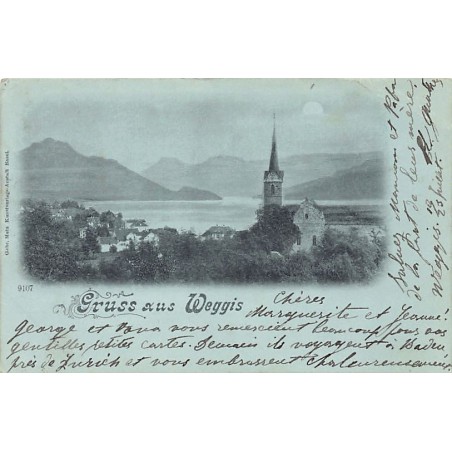 Gebr. Metz Kunstverlags-Anstalt Basel.
9107
Gruss aus Weggis
Chères
Marguerite et Jeanne!
George et vous remercient beaucoup pour vos
gentilles petites cartes. Demain ils voyagent à Baden
près de Zurich et vous embrassent chaleureusement
Saluez Maman et Papa
de la part de leur mère.
Weggis